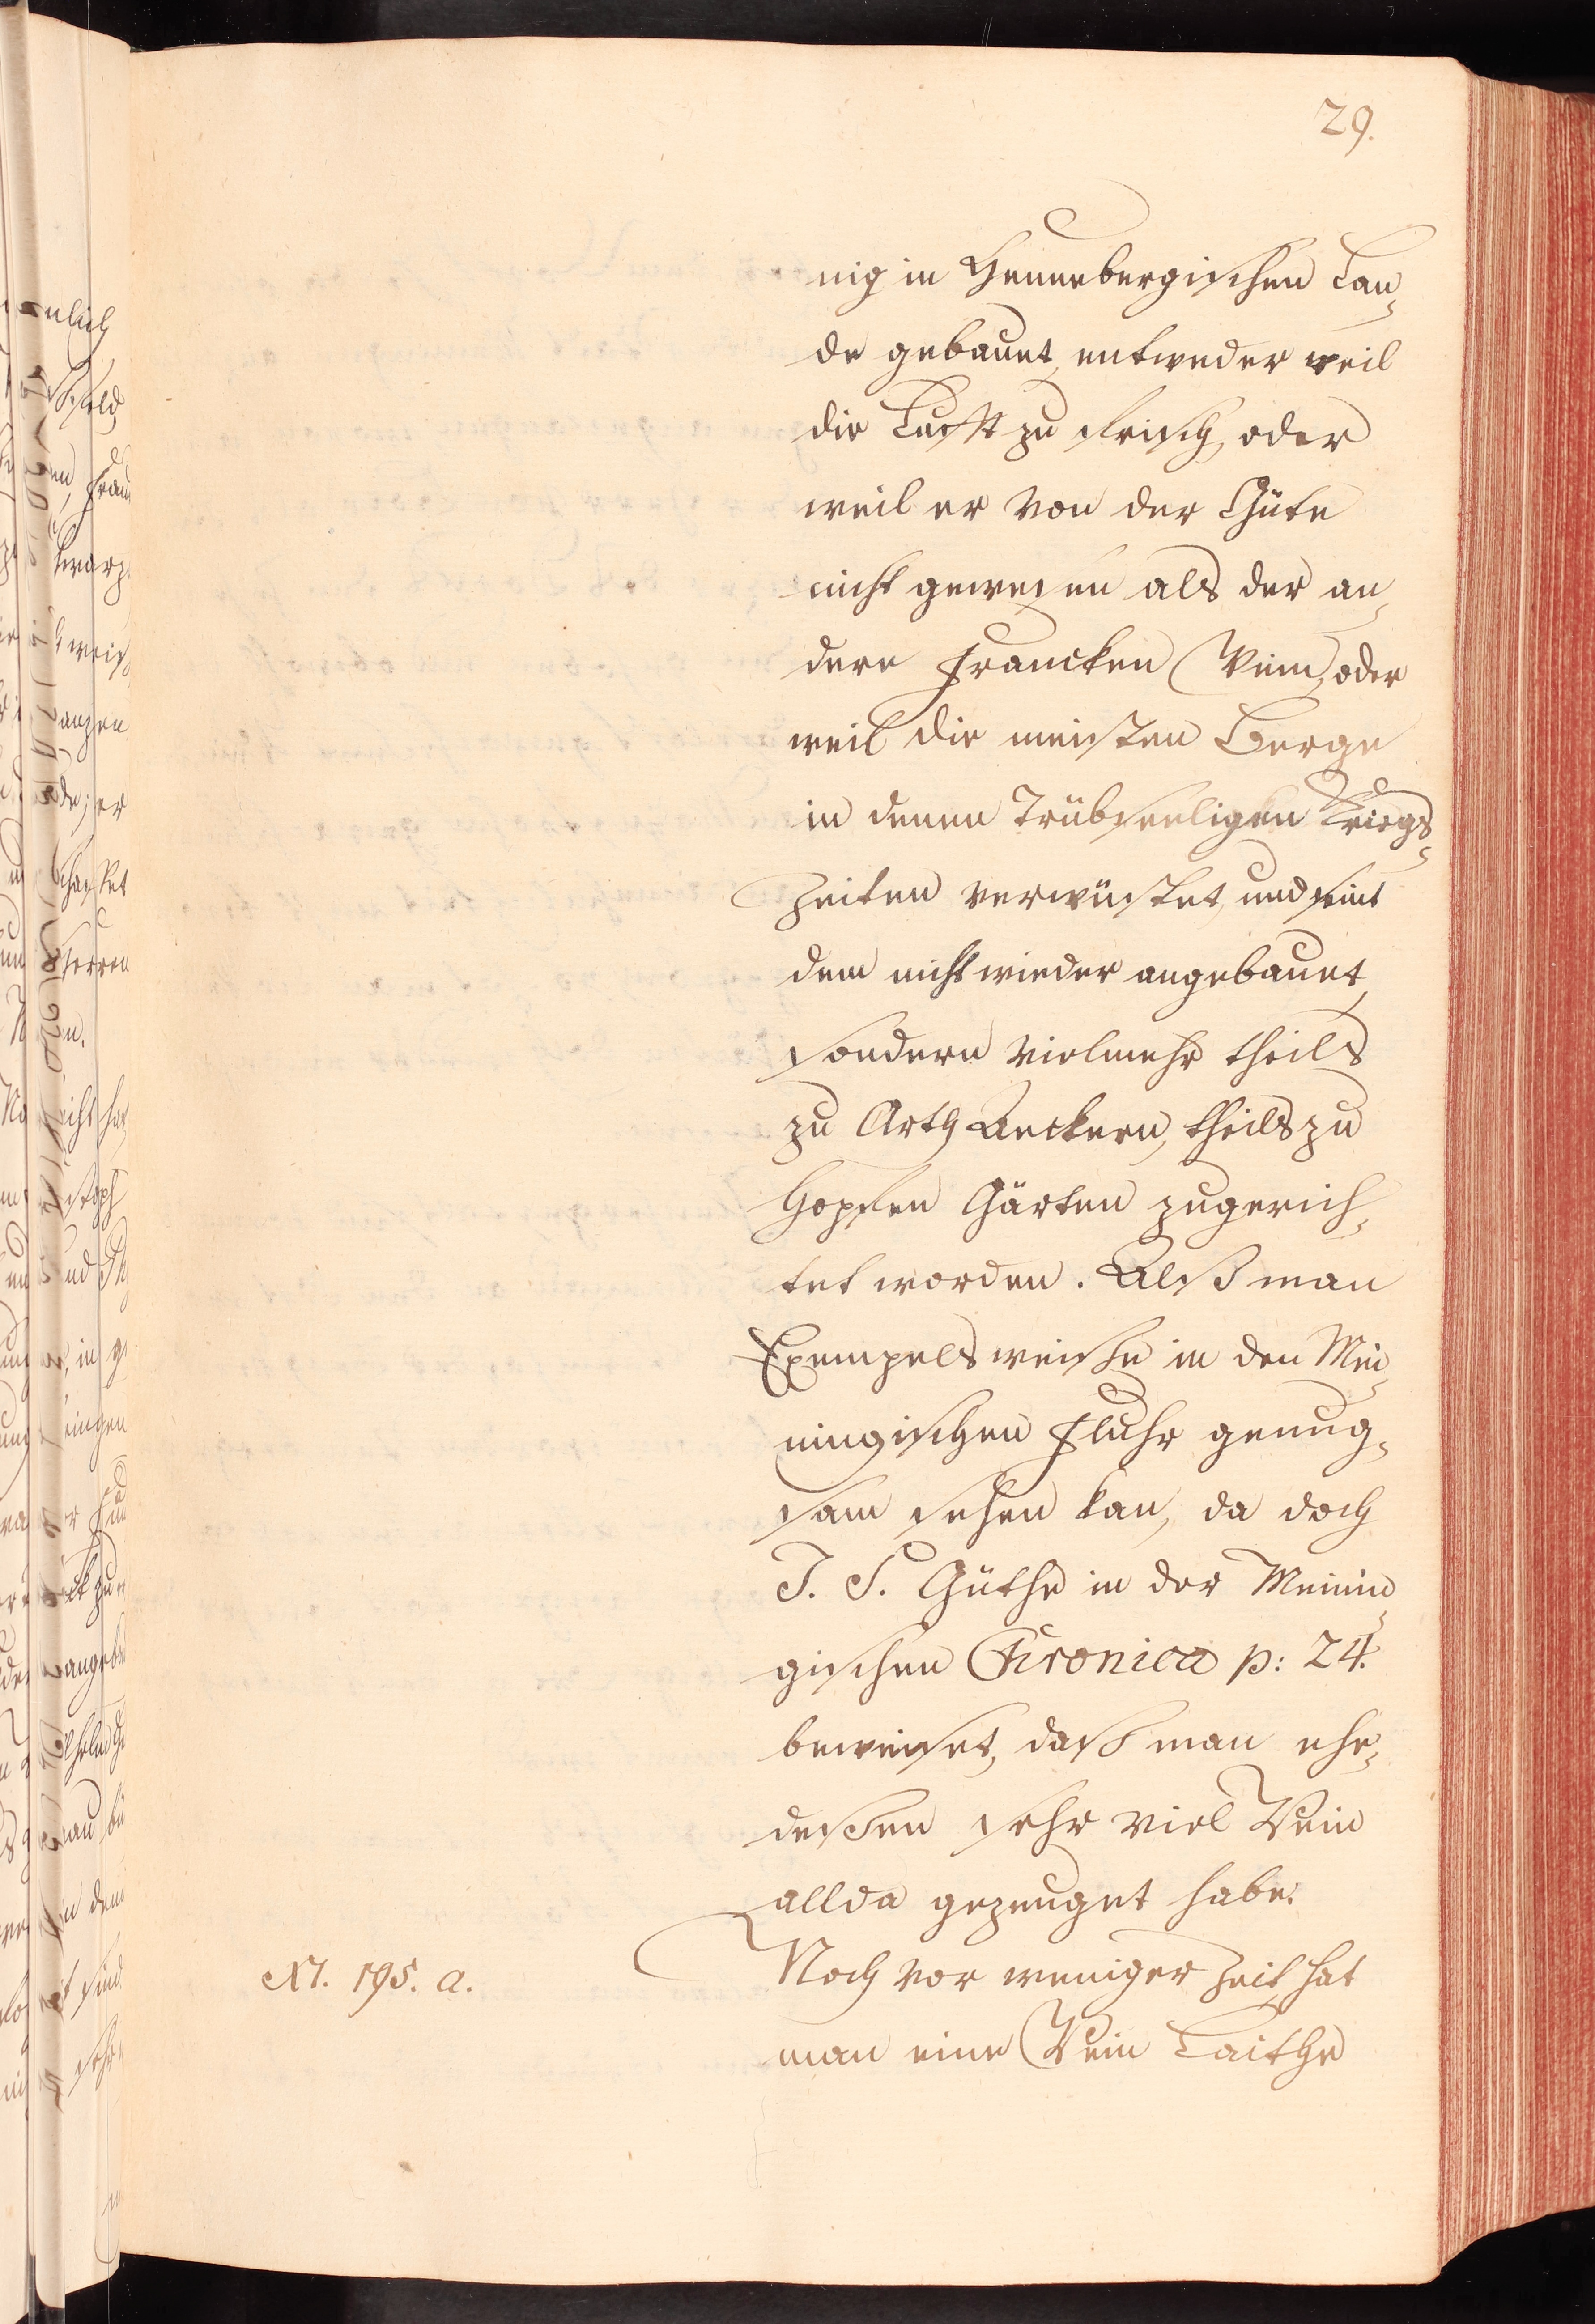 29.
nig in Hennebergischen Lan-
de gebauet, entweder weil
die Lufft zu frisch, oder
weil er von der Güte
nicht gewesen als der an-
dere Francken Wein, oder
weil die meisten Berge
in denen Trübseeligen Kriegs-
Zeiten verwüstet, und seint
dem nicht wieder angebauet,
sondern vielmehr theils
zu Arth Aeckern, theils zu
Hopfen Gärten zugerich-
tet worden. Alß man
Exempels weiße in den Mei-
ningischen Fluhr genug-
sam sehen kan, da doch
J. S. Güthe in der Meinin-
gischen Chronica p: 24.
beweiset, daß man ehe-
deßen sehr viel Wein
allda gezeuget habe.
Noch vor weniger Zeit hat
man eine Wein Laithe
N. 195. a.